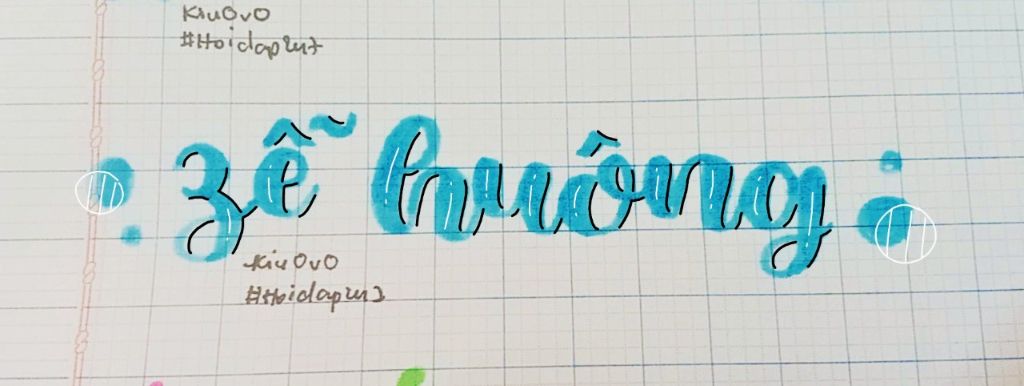 Kiu0v0
#Hoidap247
zễ huông
Kiu0v0
#Hoidap247